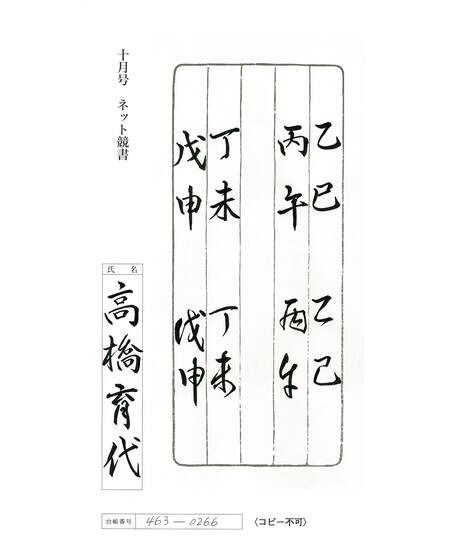 十月号 ネット競書
乙巳 乙巳
丙午 丙午
丁未 丁未
戊申 戊申
氏名
高橋育代
台帳番号 463-0266 〈コピー不可〉